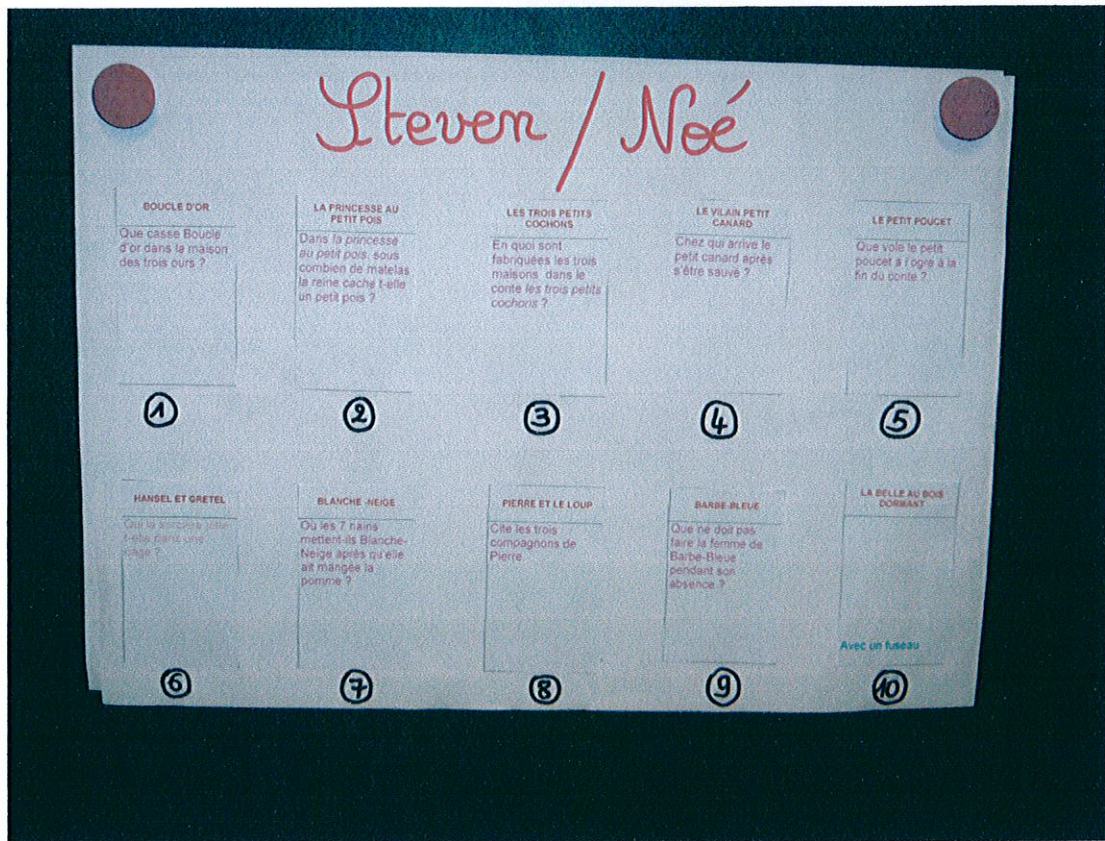 Steven / Noé
BOUCLE D'OR
Que casse Boucle
d'or dans la maison
des trois ours ?
1
LA PRINCESSE AU
PETIT POIS
Dans la princesse
au petit pois, sous
combien de matelas
la reine cache t-elle
un petit pois ?
2
LES TROIS PETITS
COCHONS
En quoi sont
fabriquées les trois
maisons dans le
conte les trois petits
cochons ?
3
LE VILAIN PETIT
CANARD
Chez qui arrive le
petit canard après
s'être sauvé ?
4
LE PETIT POUCET
Que vole le petit
poucet à l'ogre à la
fin du conte ?
5
HANSEL ET GRETEL
Qui la sorcière jette
t-elle dans une
cage ?
6
BLANCHE -NEIGE
Où les 7 nains
mettent-ils Blanche-
Neige après qu'elle
ait mangée la
pomme ?
7
PIERRE ET LE LOUP
Cite les trois
compagnons de
Pierre
8
BARBE-BLEUE
Que ne doit pas
faire la femme de
Barbe-Bleue
pendant son
absence ?
9
LA BELLE AU BOIS
DORMANT
Avec un fuseau
10